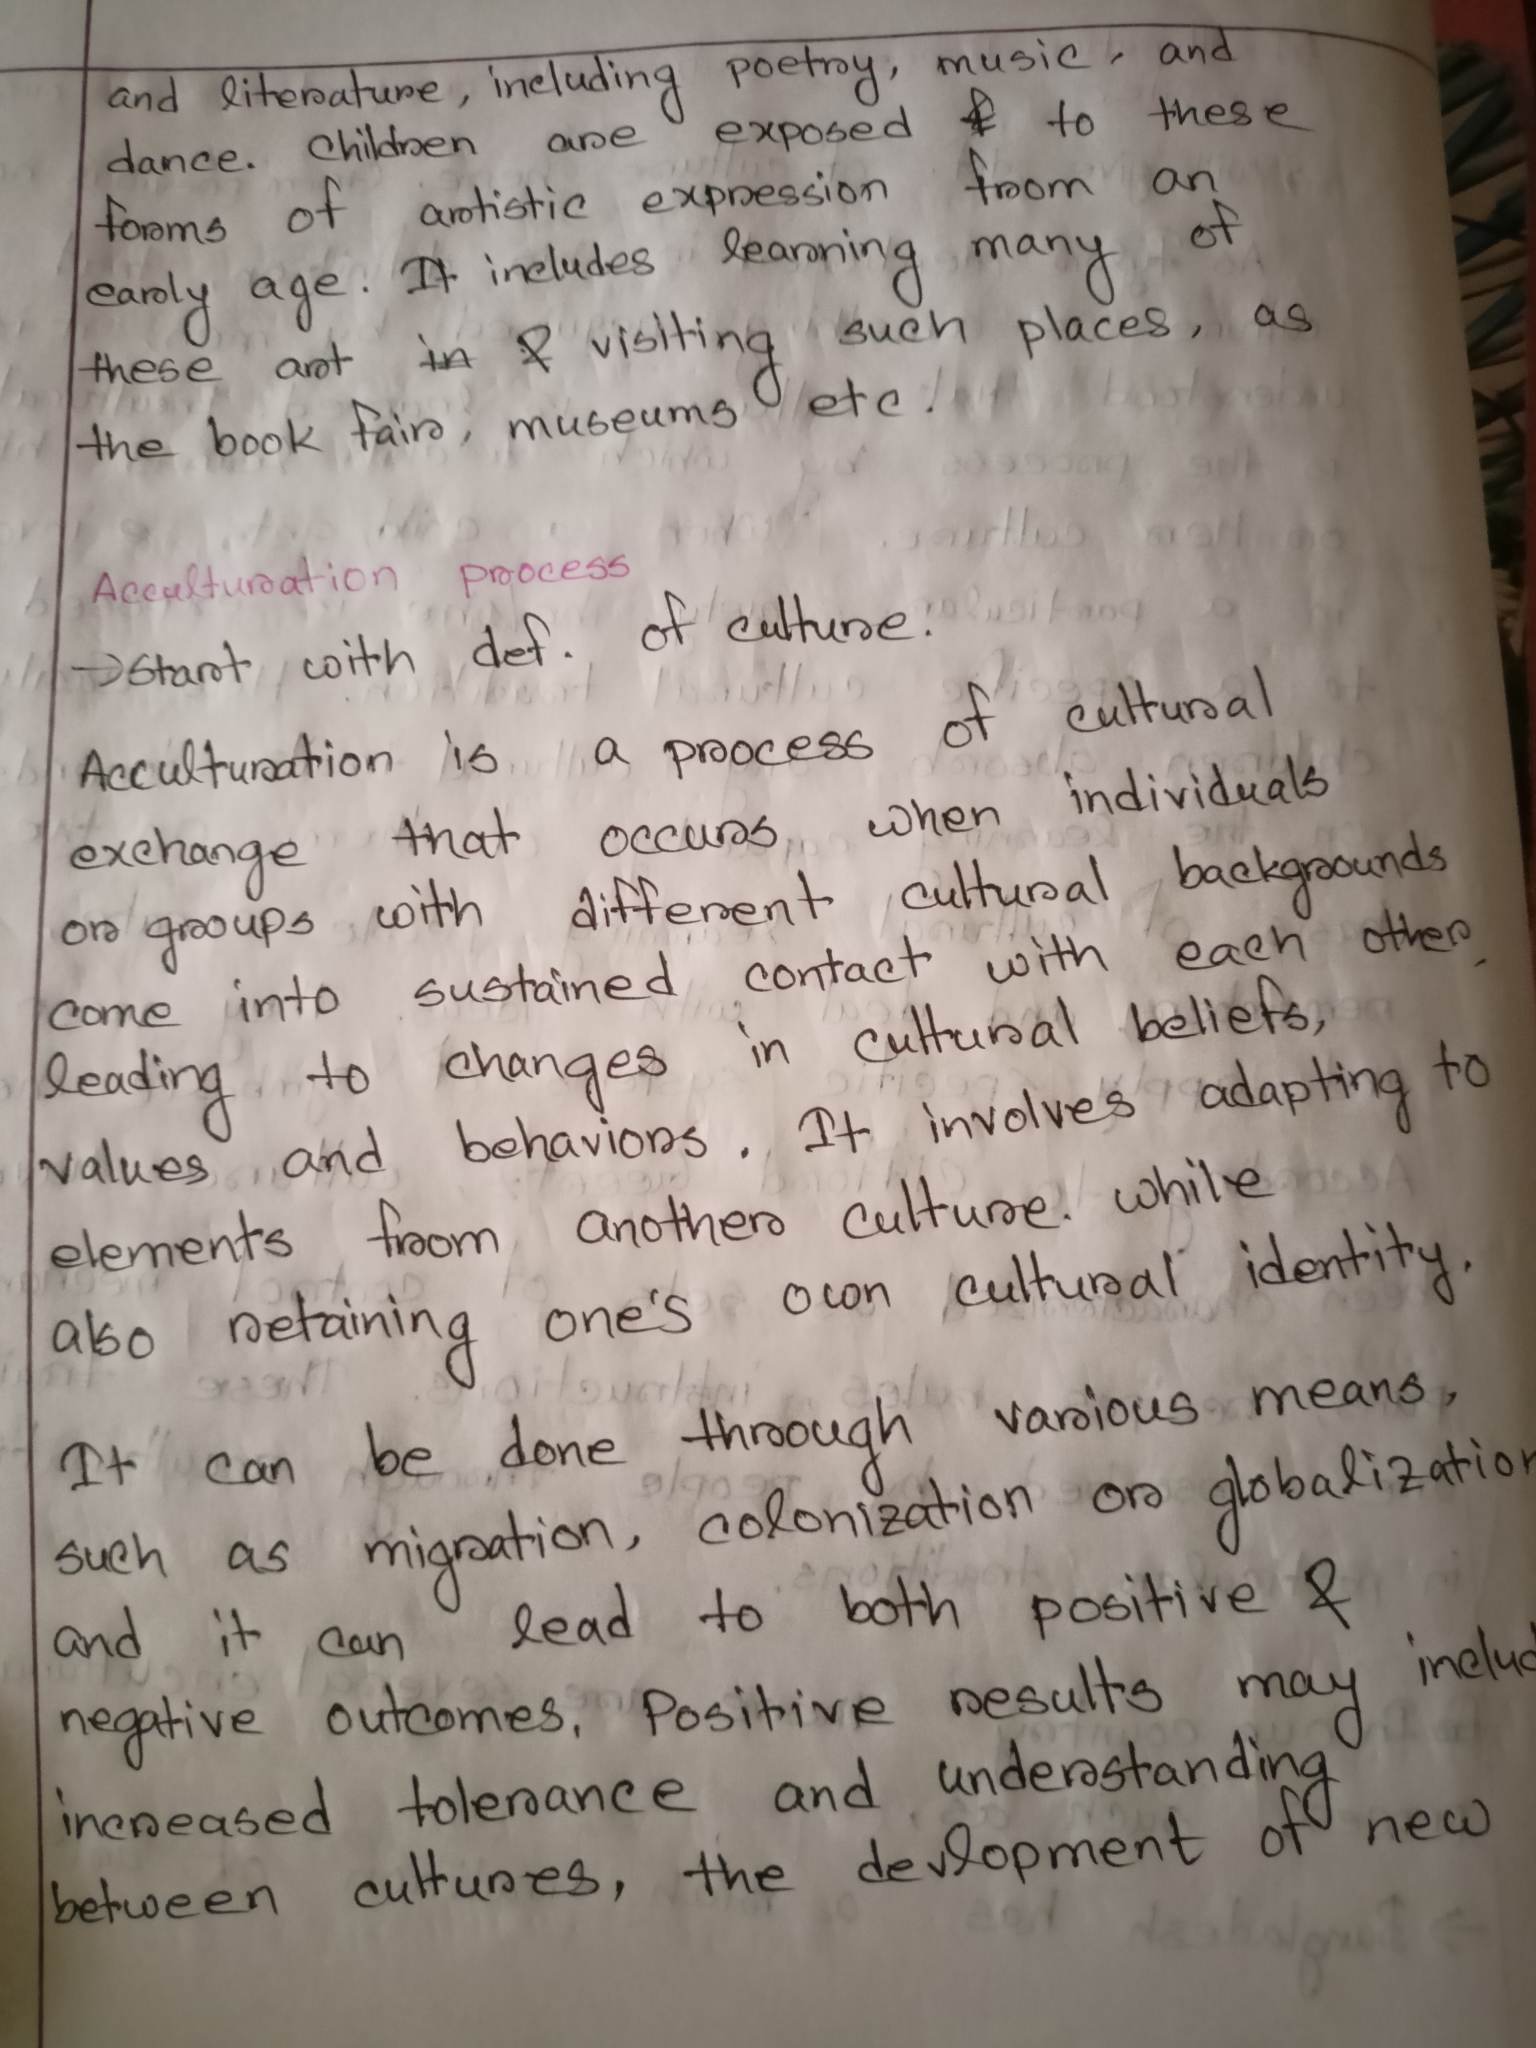 and literature, including poetry, music, and
dance. Children are exposed to these
forms of artistic expression from an
early age. It includes learning many of
these art & visiting such places, as
the book fair, museums etc.
Acculturation process
→Start with def. of culture.
Acculturation is a process of cultural
exchange that occurs when individuals
or groups with different cultural backgrounds
come into sustained contact with each other,
leading to changes in cultural beliefs,
values and behaviors. It involves adapting to
elements from another culture. while
also retaining one's own cultural identity.
It can be done through various means,
such as migration, colonization or globalization
and it can lead to both positive &
negative outcomes. Positive results may includ
increased tolerance and understanding
between cultures, the devlopment of new